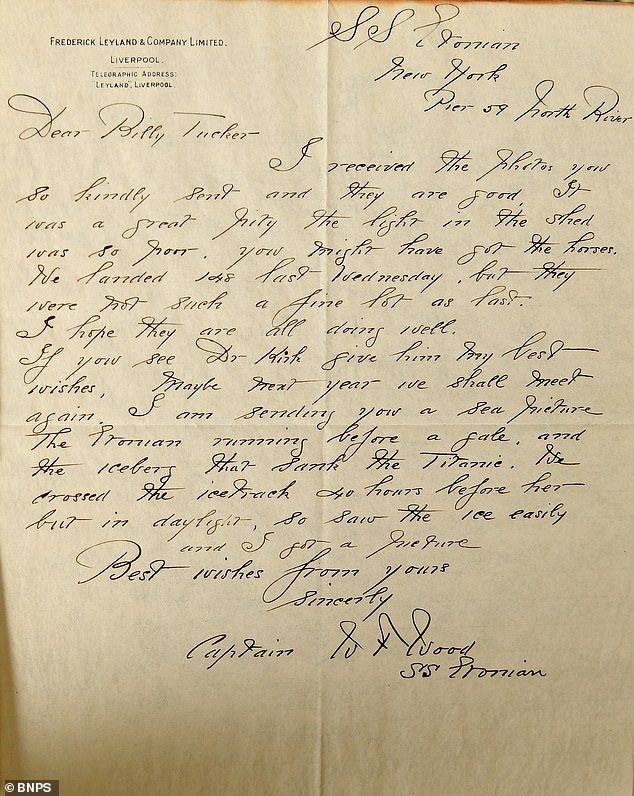 FREDERICK LEYLAND & COMPANY LIMITED.
LIVERPOOL.
TELEGRAPHIC ADDRESS:
"LEYLAND", LIVERPOOL.
SS Etonian
New York
Pier 59 North River
Dear Billy Tucker
I received the photos you
so kindly sent and they are good. It
was a great pity the light in the shed
was so poor. you might have got the horses.
We landed 148 last Wednesday, but they
were not such a fine lot as last.
I hope they are all doing well.
If you see Dr Kirk give him my best
wishes, Maybe next year we shall meet
again. I am sending you a sea picture
The Etonian running before a gale, and
the iceberg that sank the Titanic. We
crossed the icetrack 40 hours before her
but in daylight, so saw the ice easily
and I got a picture
Best wishes from yours
sincerly
Captain W F Wood
SS Etonian
© BNPS